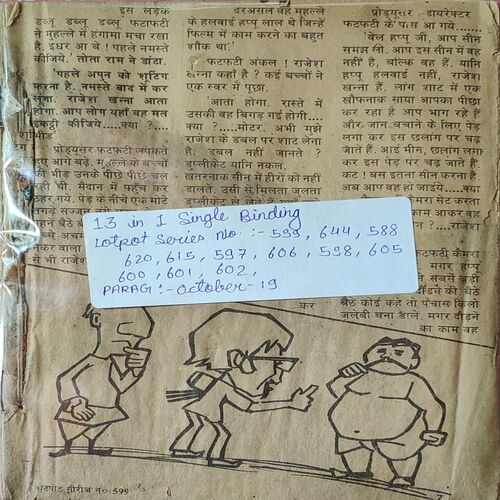 इस लड़के
डब्लू डब्लू डब्लू फटाफटी
ने मुहल्ले में हंगामा मचा रखा
है, इधर आ बे! पहले नमस्ते
कीजिये.' तोता राम ने डांटा.
'पहले अपुन को शूटिंग
करना है. नमस्ते बाद में कर
लूंगा. राजेश खन्ना आता
होगा. आप लोग यहाँ क्या मत
इकट्ठी कीजिये....क्या ?....
प्रोड्यूसर फटफटी लपकते
हुए आगे बढ़े. मुहल्ले के बच्चों
की भीड़ उनके पीछे पीछे चल
रही थी. मैदान में पहुँच कर
ठहर गये. पेड़ के नीचे एक मोटे
दरअसल वह मुहल्ले
के हलवाई हप्पू लाल थे जिन्हें
फिल्म में काम करने का बहुत
शौक था.'
फटफटी अंकल ! राजेश
खन्ना कहाँ है ? कई बच्चों ने
एक स्वर में पूछा.
आता होगा. रास्ते में
उसकी वह बिगड़ गई होगी....
क्या ?.....मोटर. अभी मुझे
राजेश के डबल पर शाट लेना
है. डबल नहीं जानते ?
डुप्लीकेट यानि नकल.
खतरनाक सीन में हीरो को नहीं
डालते. उसी से मिलता जुलता
डुप्लीकेट ले लेते हैं
प्रोड्यूसर .डायरेक्टर
फटफटी के पास आ गये......
'वेल हप्पू जी, आप सीन
समझ लो. आप इस सीन में वह
नहीं है, बल्कि वह हैं. यानि
हप्पू हलवाई नहीं, राजेश
खन्ना हैं. लांग शाट में एक
खौफनाक साया आपका पीछा
कर रहा है. आप भाग रहे हैं
और जान बचाने के लिए पेड़
लगा कर इस छलांग पर चढ़
जाते हैं. आई मीन, छलांग लगा
कर इस पेड़ पर चढ़ जाते हैं.
कट ! बस इतना सीन करना है.
अब आप वह हो जाईये....क्या
13 in 1 Single Binding
Lotpot Series No :- 599, 644, 588
620, 615, 597, 606, 598, 605
600, 601, 602,
PARAG :- October - 19
कर
बैठे कोई कहे तो पचास किलो
जलेबी बना डाले. मगर दौड़ने
का काम वह
लोटपोट सीरीज न० 599
7